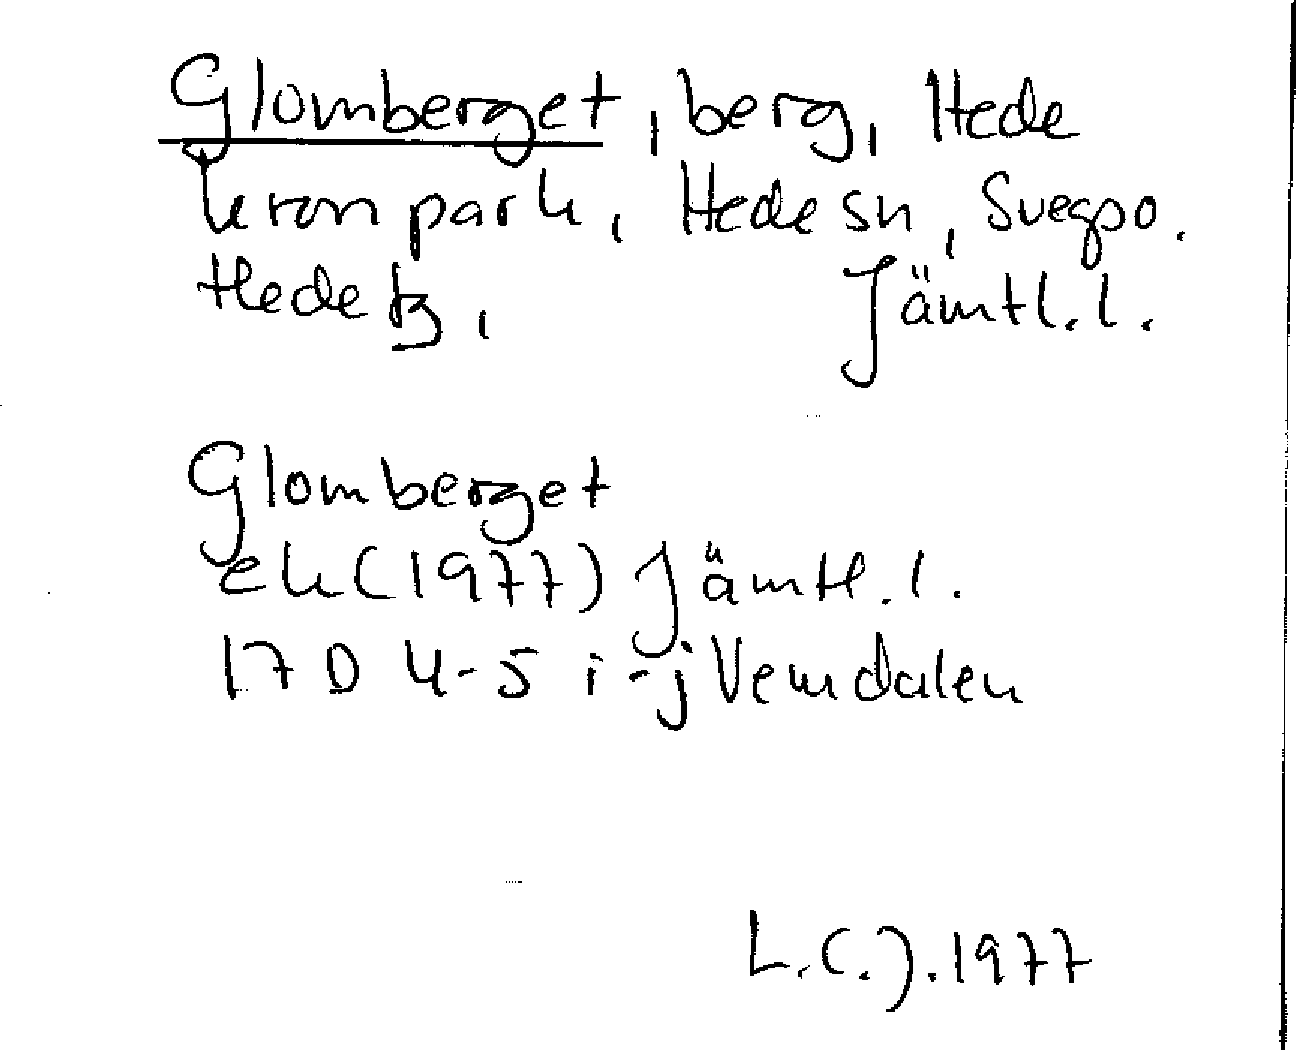 Glomberget, berg, Hede
kronpark, Hede sn, Svegs po.
Hede tg, Jämtl. l.
Glomberget
ek (1977) Jämtl. l.
17 D 4-5 i-j Vemdalen
L.C.J. 1977